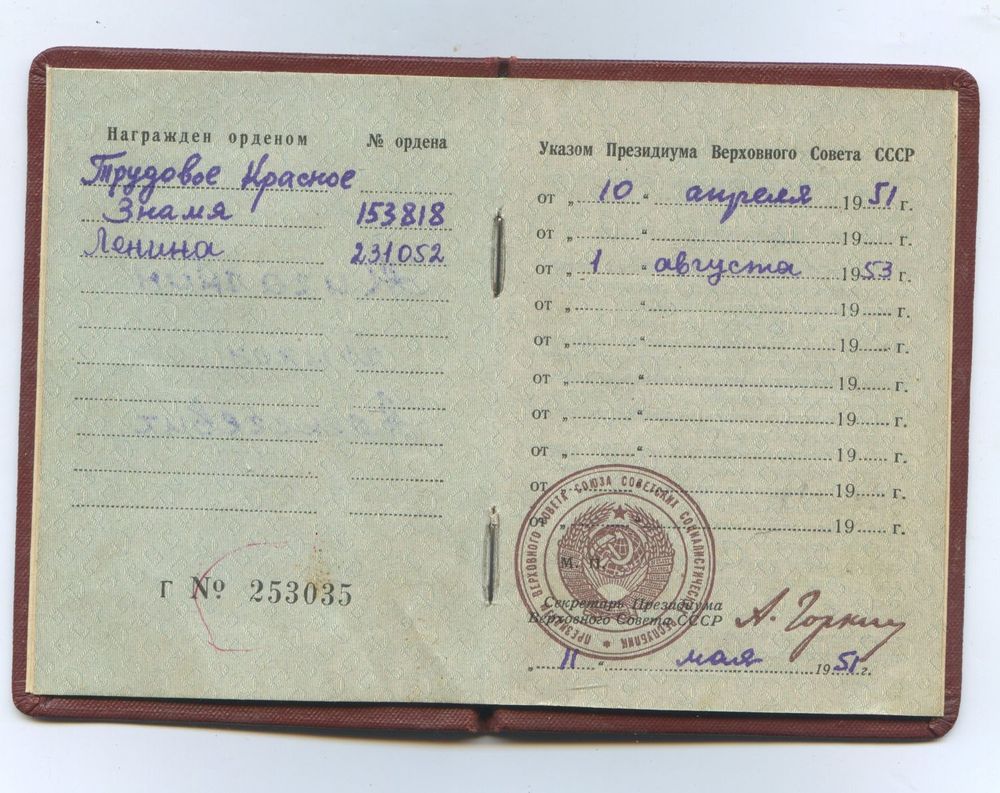 Награжден орденом № ордена
Трудовое Красное
Знамя 153818
Ленина 231052
г № 253035
Указом Президиума Верховного Совета СССР
от „ 10 “ апреля 1951 г.
от „ “ 19 г.
от „ 1 “ августа 1953 г.
от „ “ 19 г.
от „ “ 19 г.
от „ “ 19 г.
от „ “ 19 г.
от „ “ 19 г.
от „ “ 19 г.
от „ “ 19 г.
ПРЕЗИДИУМ ВЕРХОВНОГО СОВЕТА СОЮЗА СОВЕТСКИХ СОЦИАЛИСТИЧЕСКИХ РЕСПУБЛИК
М. П.
Секретарь Президиума
Верховного Совета СССР А. Горкин
„ 11 “ мая 1951 г.